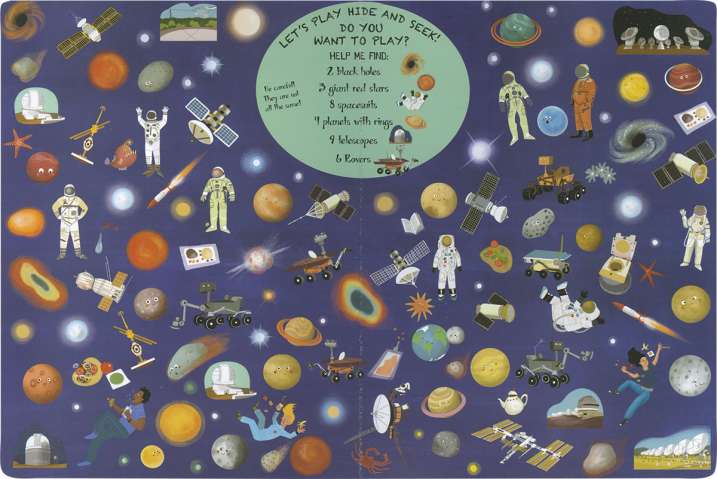 LET'S PLAY HIDE AND SEEK!
DO YOU
WANT TO PLAY?
HELP ME FIND:
2 black holes
3 giant red stars
8 spacesuits
4 planets with rings
9 telescopes
6 Rovers
Be careful!
They are not
all the same!